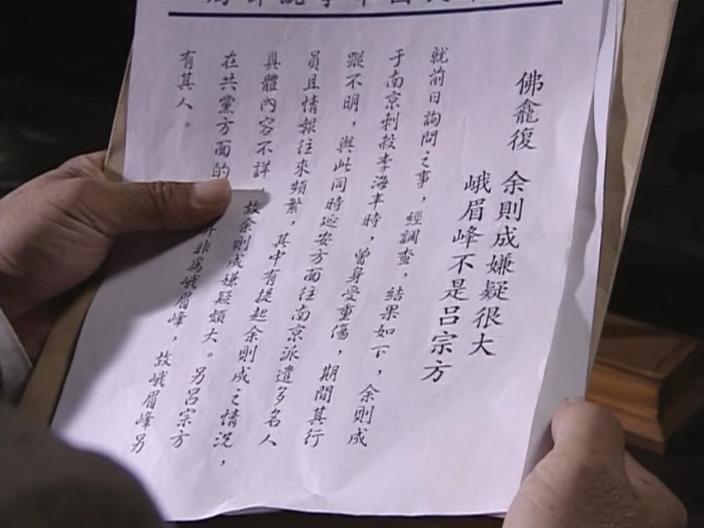 佛龕復
余則成嫌疑很大
峨眉峰不是呂宗方
就前日詢問之事，經調查，結果如下，余則成
于南京刺殺李海丰時，曾身受重傷，期間其行
蹤不明，與此同時延安方面往南京派遣多名人
員且情報往來頻繁，其中有提起余則成之情況，
具體內容不詳，故余則成嫌疑頗大。另呂宗方
在共黨方面的
非爲峨眉峰，故峨眉峰另
有其人。